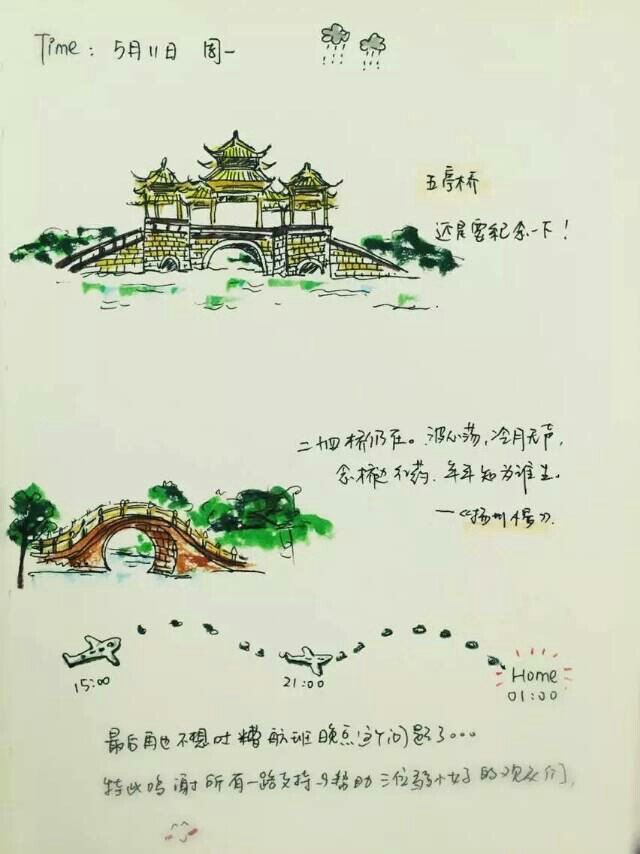 Time: 5月11日 周一
五亭桥
还是要纪念一下!
二十四桥仍在。波心荡,冷月无声,
念桥边红药,年年知为谁生。
—《扬州慢》.
15:00
21:00
Home
01:00
最后再也不想吐糟航班晚点这个问题了...
特此鸣谢所有一路支持与帮助三位弱小的观众们.